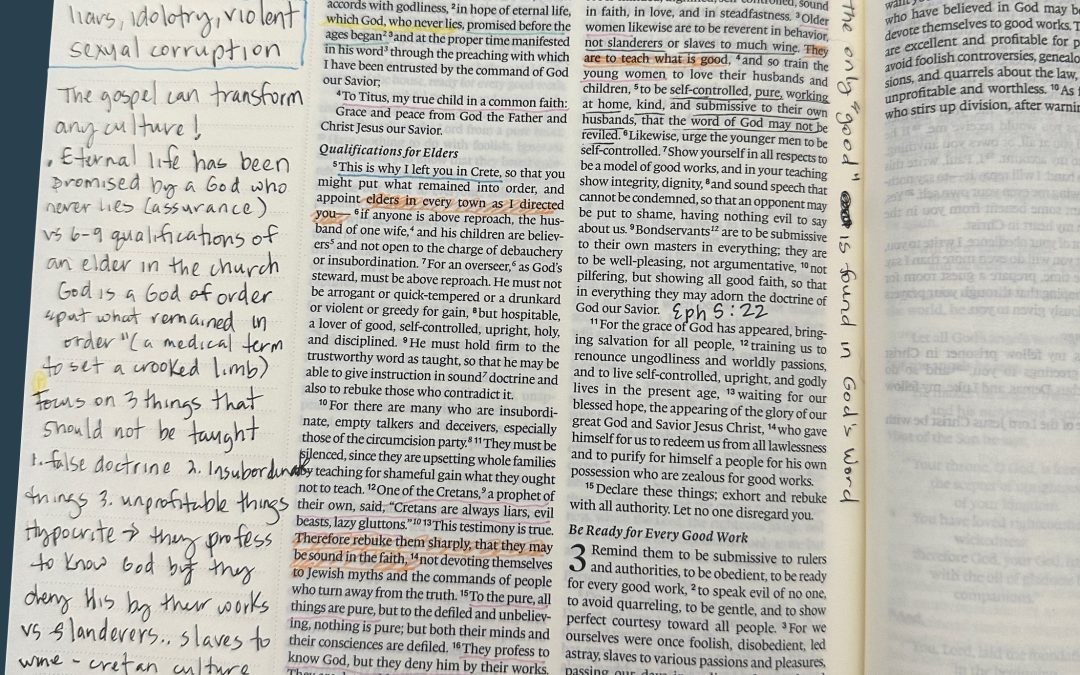 liars, idolotry, violent
sexual corruption
The gospel can transform
any culture!
. Eternal life has been
promised by a God who
never lies (assurance)
vs 6-9 qualifications of
an elder in the church
God is a God of order
"put what remained in
order" (a medical term
to set a crooked limb)
Focus on 3 things that
should not be taught
1. false doctrine 2. Insubordinate
things 3. unprofitable things
Hypocrite → they profess
to know God but they
deny this by their works
vs slanderers.. slaves to
wine - cretan culture
accords with godliness, 2 in hope of eternal life,
which God, who never lies, promised before the
ages began 2 3 and at the proper time manifested
in his word 3 through the preaching with which
I have been entrusted by the command of God
our Savior;
4 To Titus, my true child in a common faith:
Grace and peace from God the Father and
Christ Jesus our Savior.
Qualifications for Elders
5 This is why I left you in Crete, so that you
might put what remained into order, and
appoint elders in every town as I directed
you— 6 if anyone is above reproach, the hus-
band of one wife, 4 and his children are believ-
ers 5 and not open to the charge of debauchery
or insubordination. 7 For an overseer, 6 as God's
steward, must be above reproach. He must not
be arrogant or quick-tempered or a drunkard
or violent or greedy for gain, 8 but hospitable,
a lover of good, self-controlled, upright, holy,
and disciplined. 9 He must hold firm to the
trustworthy word as taught, so that he may be
able to give instruction in sound 7 doctrine and
also to rebuke those who contradict it.
10 For there are many who are insubordi-
nate, empty talkers and deceivers, especially
those of the circumcision party. 8 11 They must be
silenced, since they are upsetting whole families
by teaching for shameful gain what they ought
not to teach. 12 One of the Cretans, 9 a prophet of
their own, said, "Cretans are always liars, evil
beasts, lazy gluttons." 10 13 This testimony is true.
Therefore rebuke them sharply, that they may
be sound in the faith, 14 not devoting themselves
to Jewish myths and the commands of people
who turn away from the truth. 15 To the pure, all
things are pure, but to the defiled and unbeliev-
ing, nothing is pure; but both their minds and
their consciences are defiled. 16 They profess to
know God, but they deny him by their works.
in faith, in love, and in steadfastness. 3 Older
women likewise are to be reverent in behavior,
not slanderers or slaves to much wine. They
are to teach what is good, 4 and so train the
young women to love their husbands and
children, 5 to be self-controlled, pure, working
at home, kind, and submissive to their own
husbands, that the word of God may not be
reviled. 6 Likewise, urge the younger men to be
self-controlled. 7 Show yourself in all respects to
be a model of good works, and in your teaching
show integrity, dignity, 8 and sound speech that
cannot be condemned, so that an opponent may
be put to shame, having nothing evil to say
about us. 9 Bondservants 12 are to be submissive
to their own masters in everything; they are
to be well-pleasing, not argumentative, 10 not
pilfering, but showing all good faith, so that
in everything they may adorn the doctrine of
God our Savior. Eph 5:22
11 For the grace of God has appeared, bring-
ing salvation for all people, 12 training us to
renounce ungodliness and worldly passions,
and to live self-controlled, upright, and godly
lives in the present age, 13 waiting for our
blessed hope, the appearing of the glory of our
great God and Savior Jesus Christ, 14 who gave
himself for us to redeem us from all lawlessness
and to purify for himself a people for his own
possession who are zealous for good works.
15 Declare these things; exhort and rebuke
with all authority. Let no one disregard you.
Be Ready for Every Good Work
3 Remind them to be submissive to rulers
and authorities, to be obedient, to be ready
for every good work, 2 to speak evil of no one,
to avoid quarreling, to be gentle, and to show
perfect courtesy toward all people. 3 For we
ourselves were once foolish, disobedient, led
astray, slaves to various passions and pleasures,
passing our days in
the only "good" is found in God's Word
who have believed in God may be
devote themselves to good works. T
are excellent and profitable for p
avoid foolish controversies, genealo
sions, and quarrels about the law,
unprofitable and worthless. 10 As f
who stirs up division, after warnin